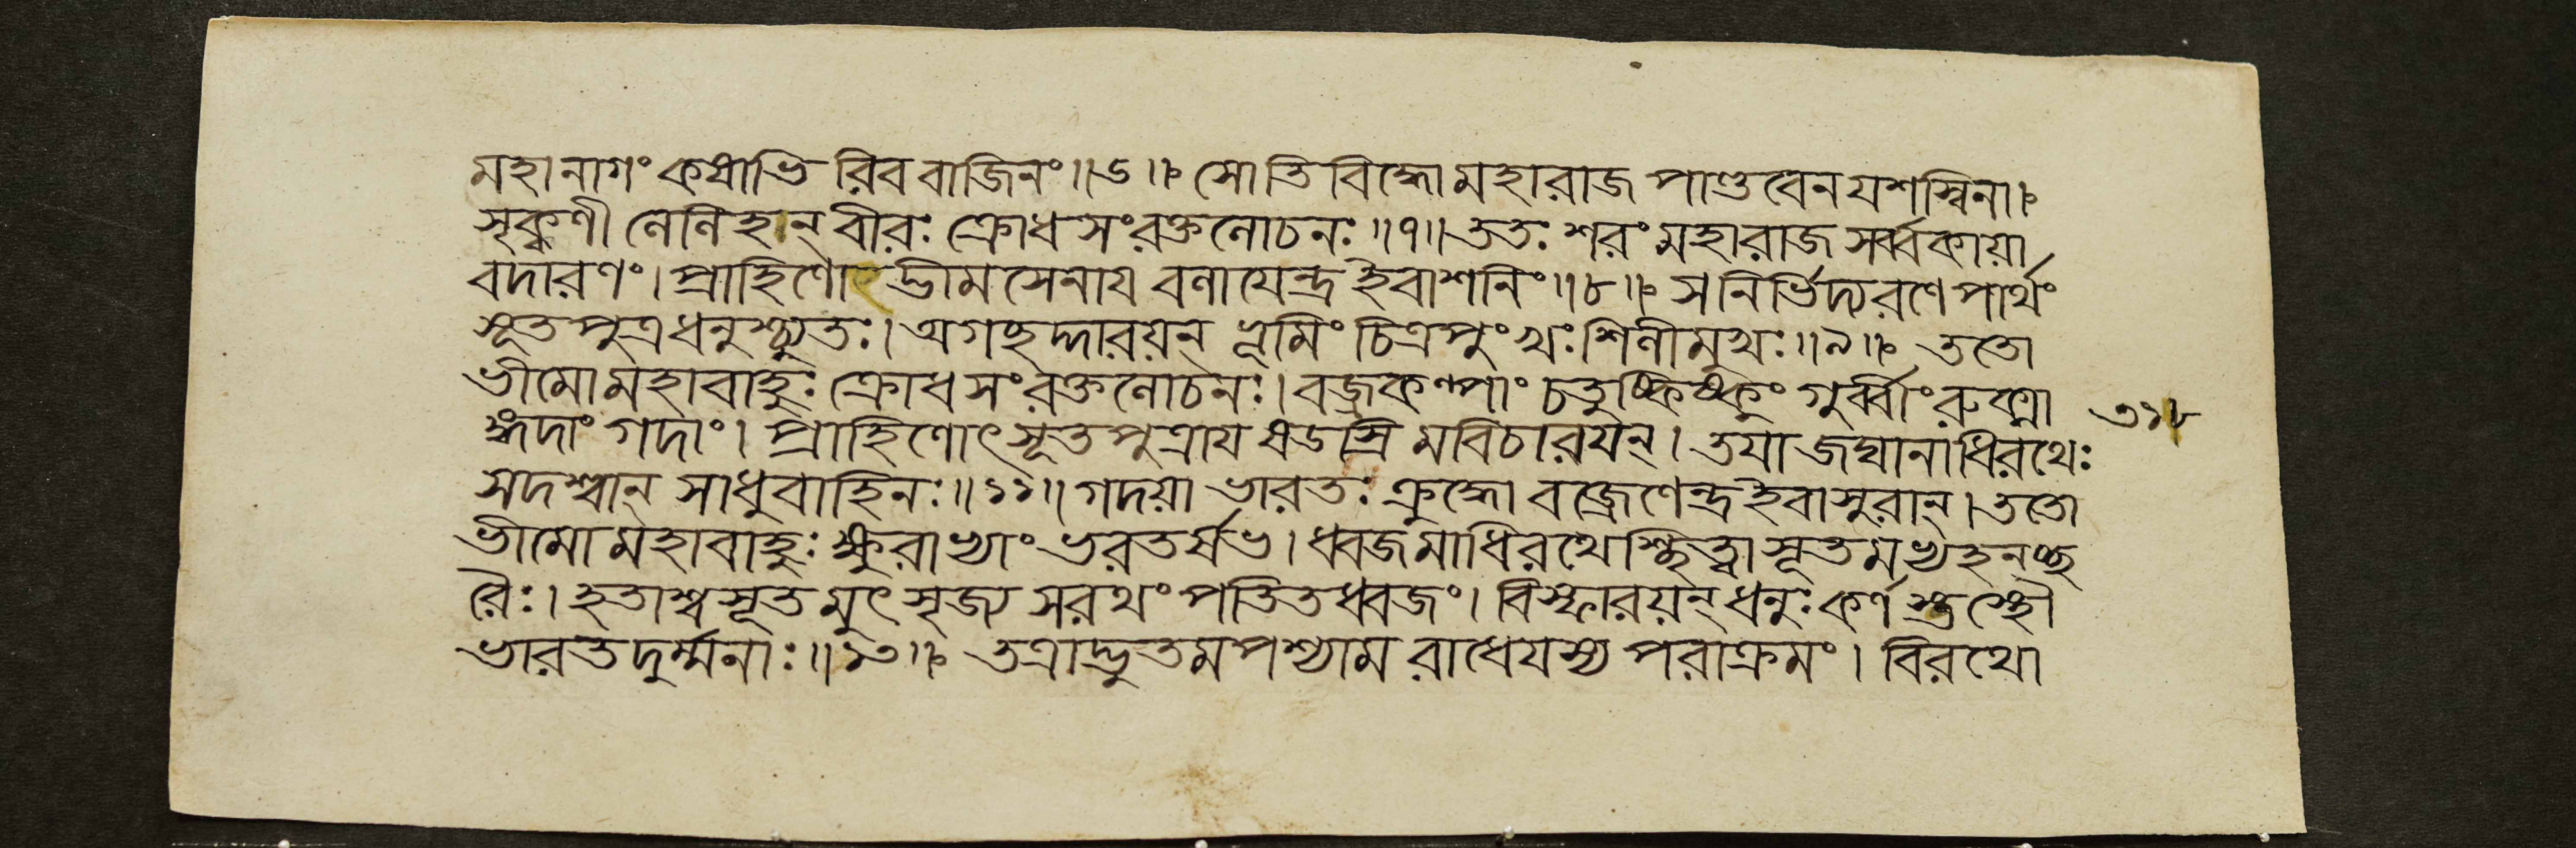 মহানাগং কষাভিরিব বাজিনং॥৬॥ সোতিবিদ্ধো মহারাজ পাণ্ডবেন যশস্বিনা।
সৃক্কণী লেলিহান্ বীরঃ ক্রোধসংরক্তলোচনঃ॥৭॥ ততঃ শরং মহারাজ সর্ব্বকায়া
বদারণং। প্রাহিণোৎ ভীমসেনায বলাযেন্দ্র ইবাশনিং॥৮॥ স নির্ভিদ্য রণে পার্থং
সূতপুত্রধনুশ্চ্যুতঃ। অগচ্ছদ্দারয়ন্ ভূমিং চিত্রপুংখঃ শিলীমুখঃ॥৯॥ ততো
ভীমো মহাবাহুঃ ক্রোধসংরক্তলোচনঃ। বজ্রকল্পাং চতুষ্কিষ্কুং গুর্ব্বীং রুক্মা ৩১৮
ঙ্গদাং গদাং। প্রাহিণোৎ সূতপুত্রায ষডস্রিমবিচারযন্। তযা জঘানাধিরথেঃ
সদশ্বান্ সাধুবাহিনঃ॥১১॥ গদয়া ভারতঃ ক্রুদ্ধো বজ্রেণেন্দ্র ইবাসুরান্। ততো
ভীমো মহাবাহুঃ ক্ষুরাভ্যাং ভরতর্ষভ। ধ্বজমাধিরথেশ্ছিত্ত্বা সূতমভ্যহনচ্ছ
রৈঃ। হতাশ্বসূতমুৎসৃজ্য সরথং পতিতধ্বজং। বিস্ফারয়ন্ ধনুঃ কর্ণস্তস্থৌ
ভারত দুর্ম্মনাঃ॥১৩॥ তত্রাদ্ভুতমপশ্যাম রাধেযস্য পরাক্রমং। বিরথো